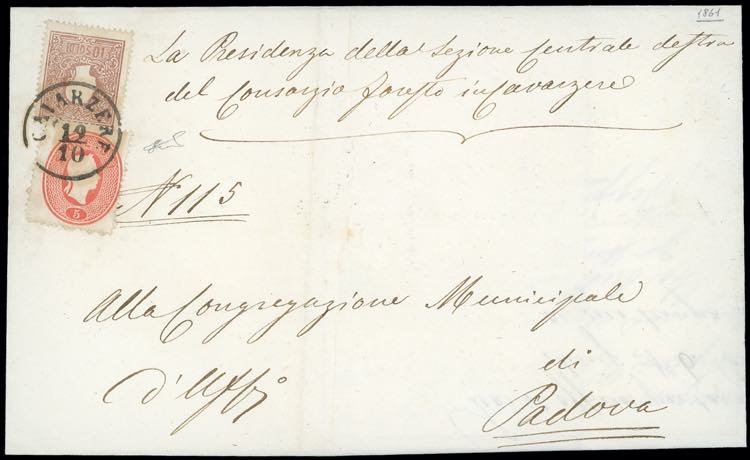 1861
La Residenza della Sezione Centrale destra
del Consorzio Foresto in Cavarzere
10 SOLDI
CAVARZERE
12
10
5
N 115
Alla Congregazione Municipale
di
d'Uffo
Padova